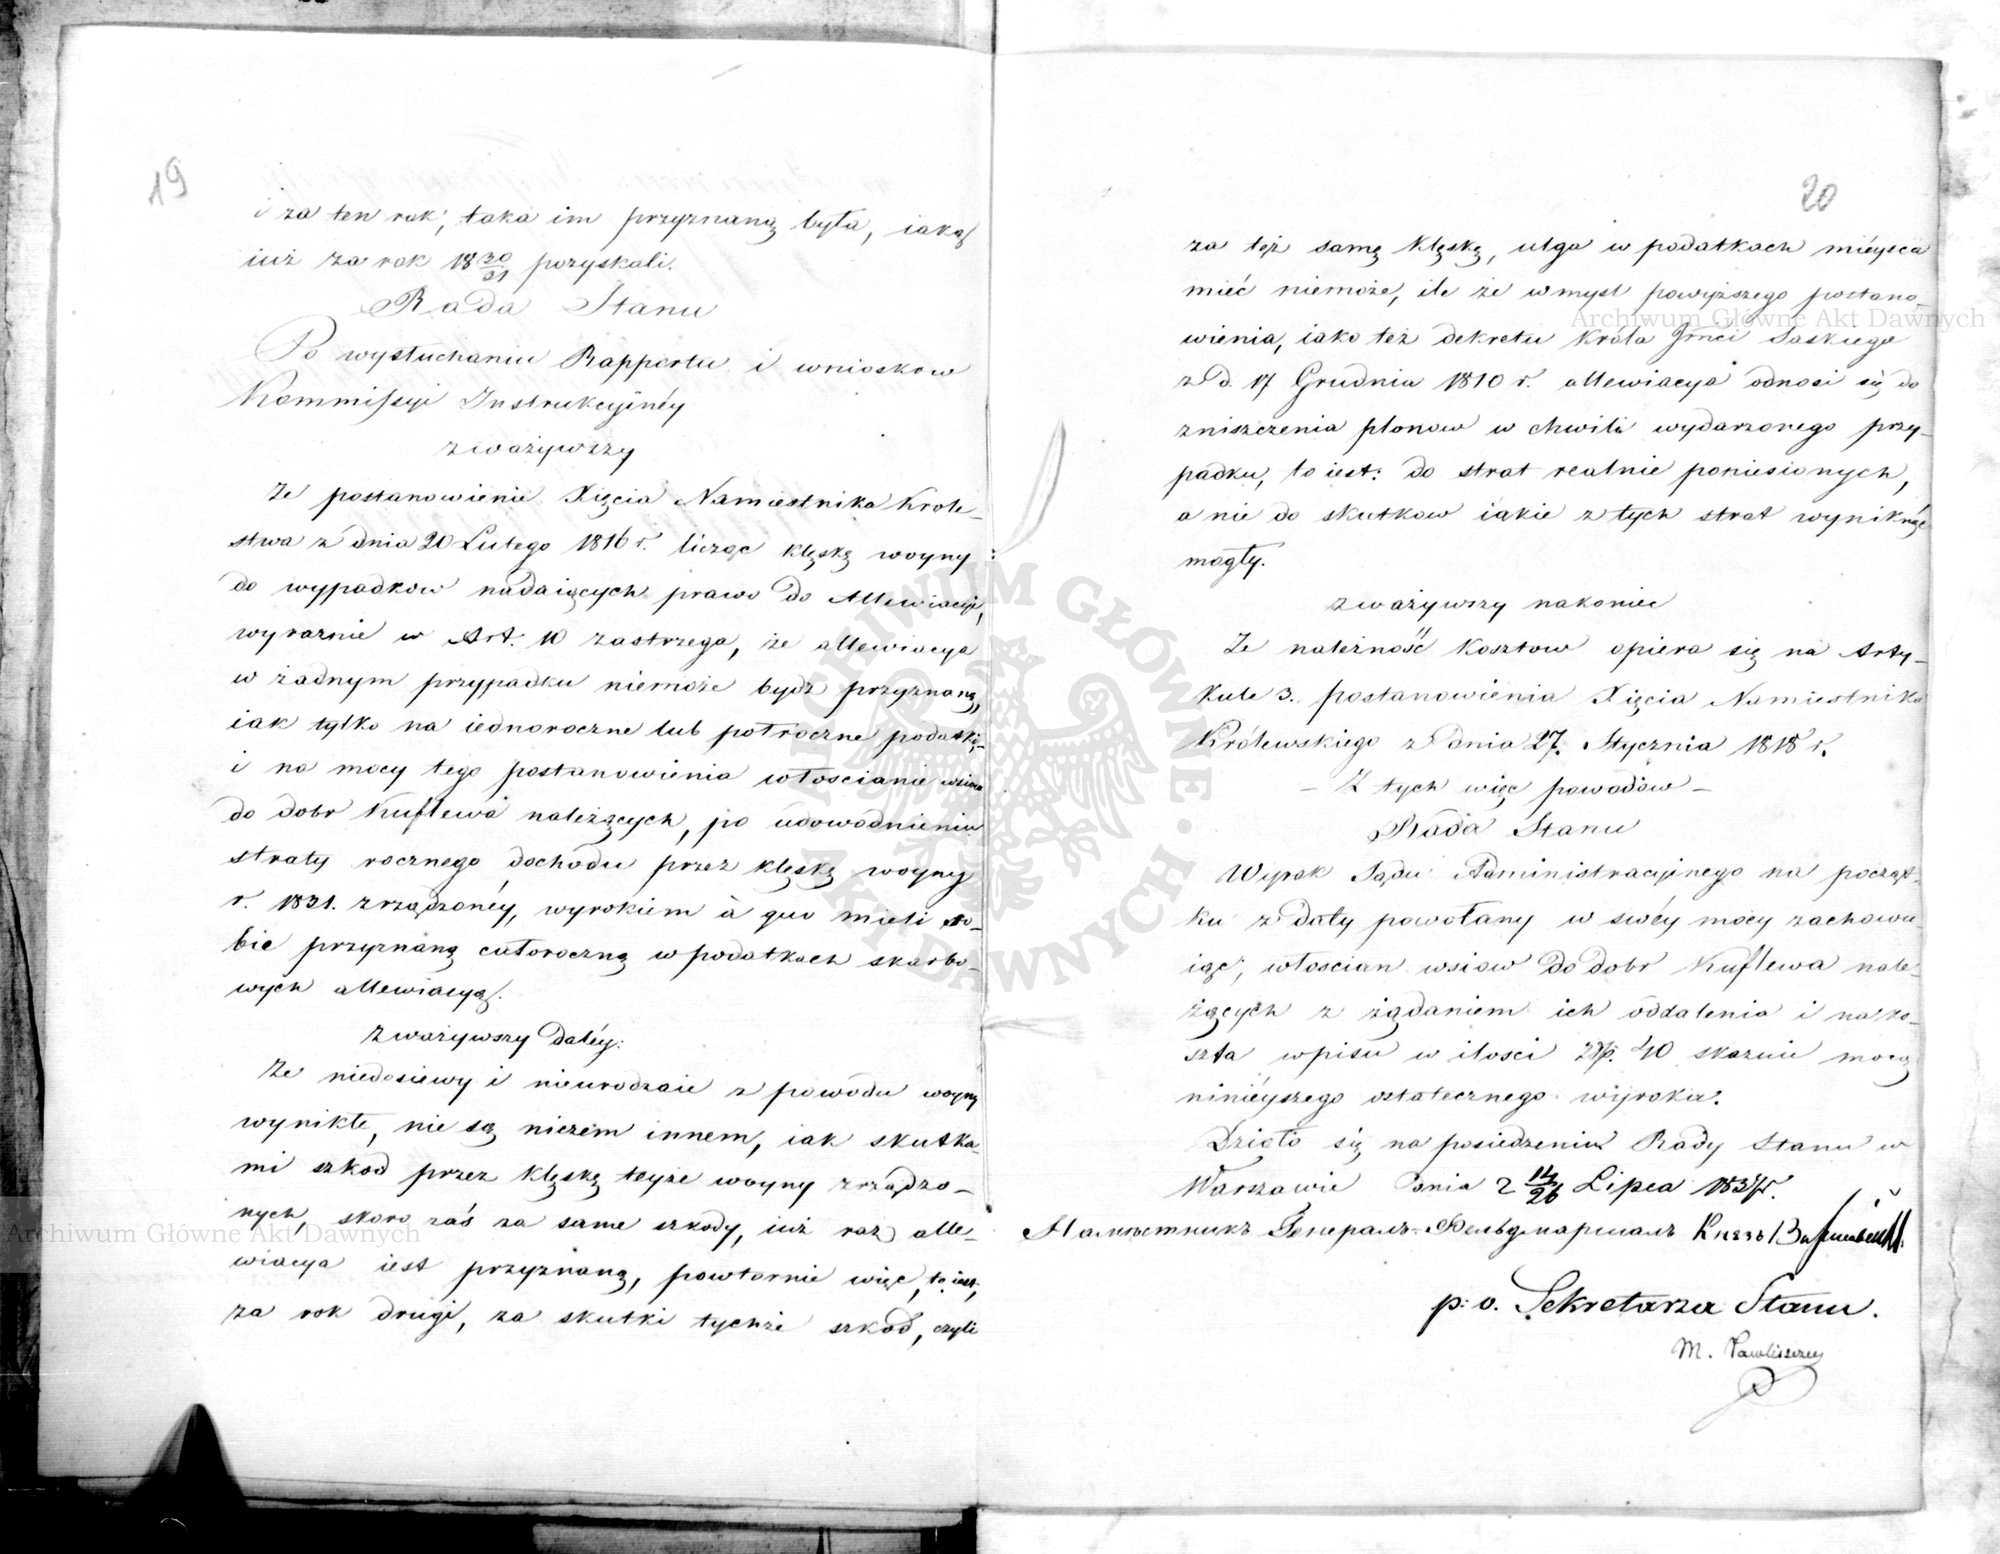 19
i za ten rok, taka im przyznaną była, iaką
iuż za rok 18 30/31 pozyskali.
Rada Stanu
Po wysłuchaniu Rapportu i wniosków
Kommissyi Instrukcyinéy
zważywszy
Ze postanowienie Xięcia Namiestnika Krole-
stwa z dnia 20 Lutego 1816 r. licząc klęskę woyny
do wypadkow nadaiących prawo do Allewiacyi,
wyraznie w Art: 10 zastrzega, że allewiacya
w żadnym przypadku niemoże bydz przyznaną,
iak tylko na iednoroczne lub połroczne podatki,-
i na mocy tego postanowienia włoscianie wsiow
do dobr Kuflewa należących, po udowodnieniu
straty rocznego dochodu przez klęskę woyny
r. 1831. zrządzonéy, wyrokiem à quo mieli so-
bie przyznaną całoroczną w podatkach skarbo-
wych allewiacyą.
Zważywszy daléy:
Ze niedosiewy i nieurodzaie z powodu woyny
wynikłe, nie są niczem innem, iak skutka-
mi szkód przez klęskę teyże woyny zrządzo-
nych, skoro zaś za same szkody, iuż raz alle-
wiacya iest przyznaną, powtornie więc, to iest,
za rok drugi, za skutki tychże szkod, czyli
20
za też samę klęskę, ulga w podatkach mieysca
mieć niemoże, ile że w mysl powyższego postano-
wienia, iako też dekretu Króla Jmci Saskiego
z d. 17 Grudnia 1810 r. allewiacya odnosi się do
zniszczenia plonow w chwili wydarzonego przy-
padku, to iest: do strat realnie poniesionych,
a nie do skutkow iakie z tych strat wyniknąć
mogły.
zważywszy nakoniec
Ze należność kosztow opiera się na Arty-
kule 3. postanowienia Xięcia Namiestnika
Królewskiego z dnia 27. Stycznia 1818 r.
- Z tych więc powodów -
Rada Stanu
Wyrok Sądu Administracyinego na począt-
ku z daty powołany w swéy mocy zachowu
iąc, włoscian wsiow do dobr Kuflewa nale-
żących z żądaniem ich oddalenia i na ko-
szta wpisu w ilosci Złp. 40 skazuie mocą
ninieyszego ostatecznego wyroku.
Działo się na posiedzeniu Rady Stanu w
Warszawie dnia 14/26 Lipca 1837 r.
Намѣстникъ Генералъ-Фельдмаршалъ Князь Варшавскій
p: o. Sekretarza Stanu.
M. Pawliszczew
Archiwum Główne Akt Dawnych
Archiwum Główne Akt Dawnych
ARCHIWUM GŁÓWNE AKT DAWNYCH